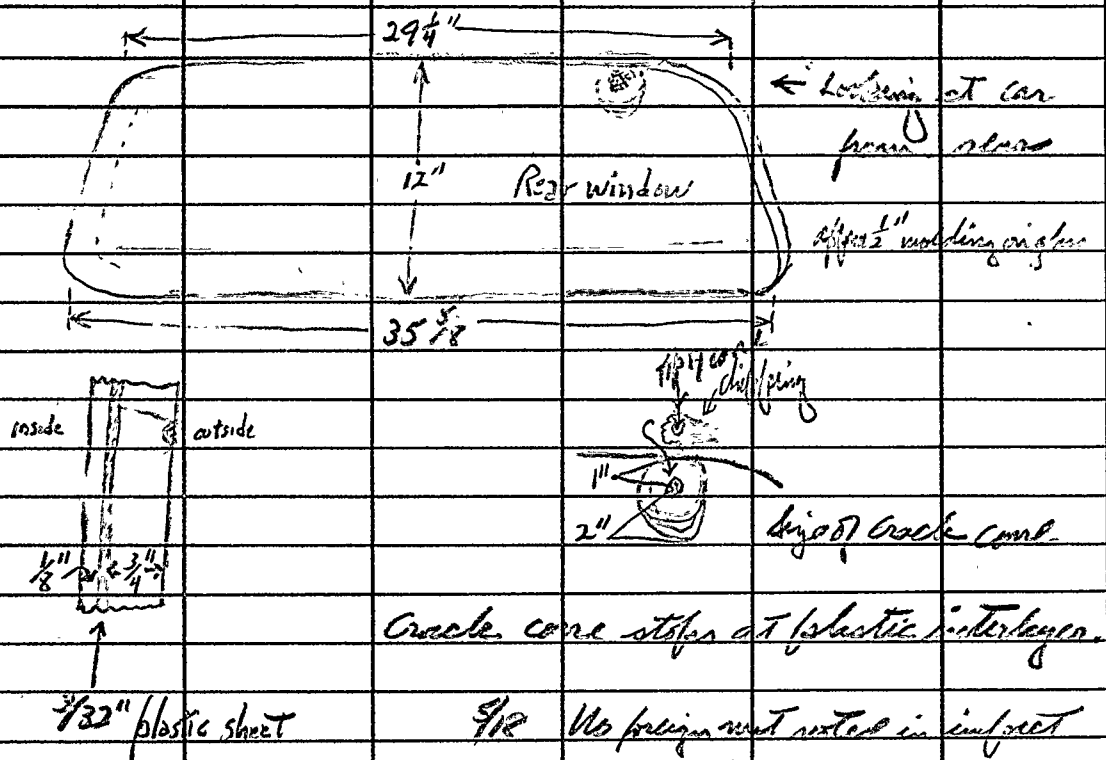 29 1/4"
← Looking at car
from rear
12"
Rear window
1/2" molding on glass
35 5/8
chipping
inside
outside
1"
2"
Size of Crack cone
1/8"
3/4"
Crack cone stops at plastic interlayer.
/32" plastic sheet
No foreign mat noted in impact